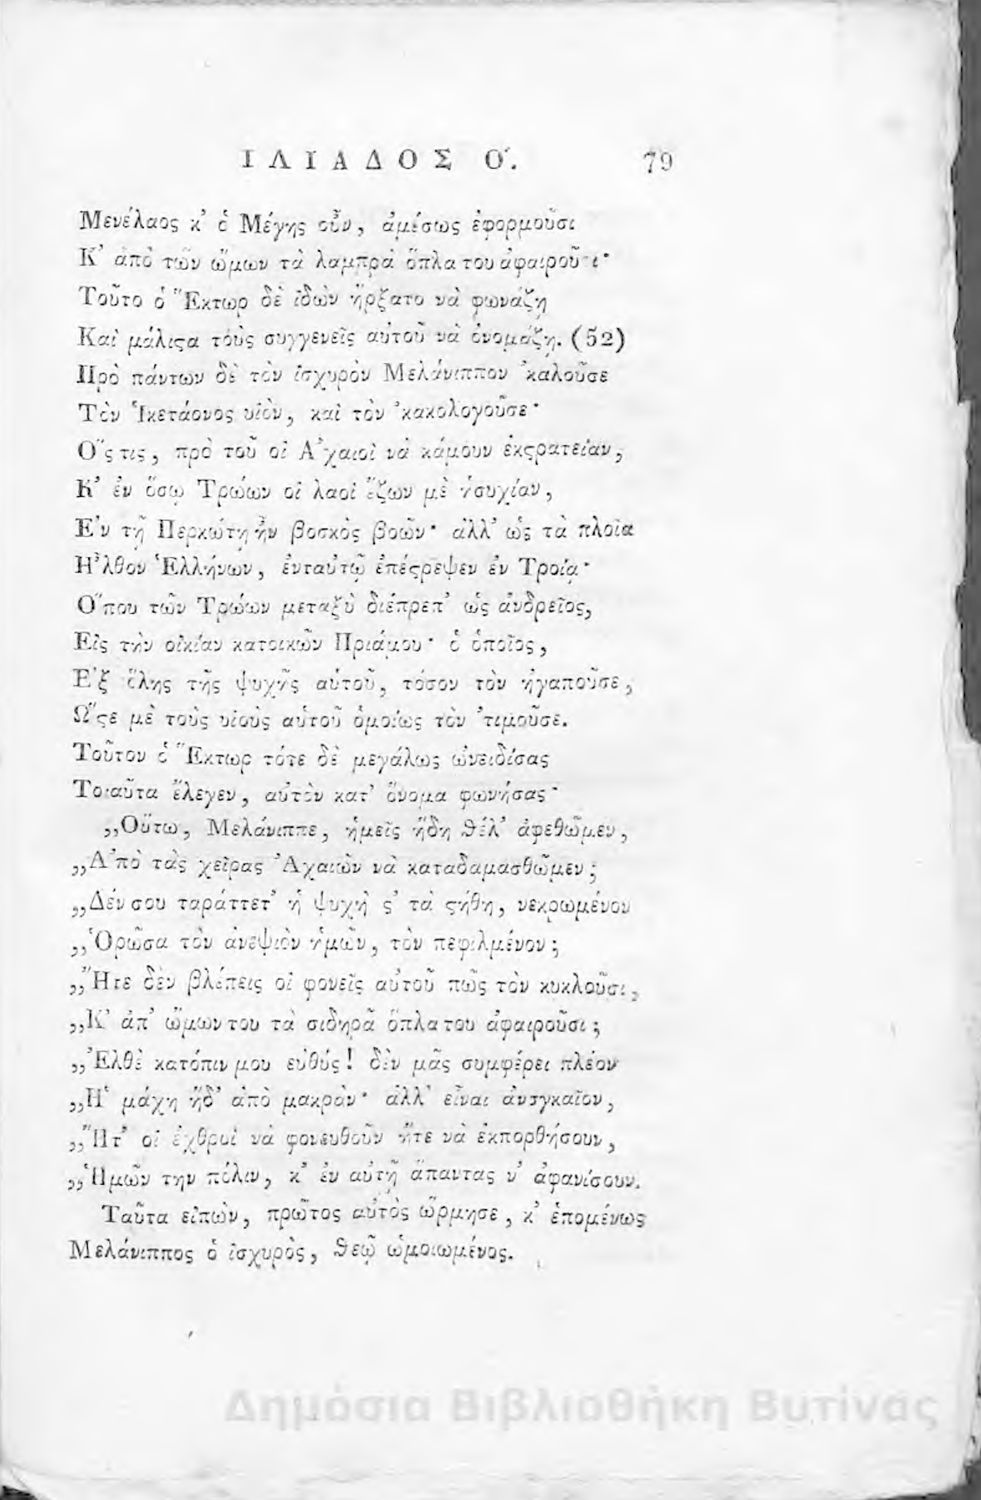 ΙΛΙΑΔΟΣ Ο'. 79
Μενέλαος κ' ὁ Μέγης οὖν, ἀμέσως ἐφορμοῦσι
Κ' ἀπὸ τῶν ὤμων τὰ λαμπρὰ ὅπλα του ἀφαιροῦσι·
Τοῦτο ὁ Ἕκτωρ δὲ ἰδὼν ἤρξατο νὰ φωνάζῃ
Καὶ μάλιϛα τοὺς συγγενεῖς αὑτοῦ νὰ ὀνομάζῃ. (52)
Πρὸ πάντων δὲ τὸν ἰσχυρὸν Μελάνιππον 'καλοῦσε
Τὸν Ἱκετάονος υἱὸν, καὶ τὸν 'κακολογοῦσε·
Ὅς τις, πρὸ τοῦ οἱ Ἀχαιοὶ νὰ κάμουν ἐκϛρατείαν,
Κ' ἐν ὅσῳ Τρώων οἱ λαοὶ ἔζων μὲ ἡσυχίαν,
Ἐν τῇ Περκώτῃ ἦν βοσκὸς βοῶν· ἀλλ' ὡς τὰ πλοῖα
Ἦλθον Ἑλλήνων, ἐνταυτῷ ἐπέϛρεψεν ἐν Τροίᾳ·
Ὅπου τῶν Τρώων μεταξὺ διέπρεπ' ὡς ἀνδρεῖος,
Εἰς τὴν οἰκίαν κατοικῶν Πριάμου· ὁ ὁποῖος,
Ἐξ ὅλης τῆς ψυχῆς αὑτοῦ, τόσον τὸν ἠγαποῦσε,
Ὥϛε μὲ τοὺς υἱοὺς αὑτοῦ ὁμοίως τὸν 'τιμοῦσε.
Τοῦτον ὁ Ἕκτωρ τότε δὲ μεγάλως ὠνειδίσας
Τοιαῦτα ἔλεγεν, αὐτὸν κατ' ὄνομα φωνήσας·
,,Οὕτω, Μελάνιππε, ἡμεῖς ἤδη θέλ' ἀφεθῶμεν,
,,Ἀπὸ τὰς χεῖρας Ἀχαιῶν νὰ καταδαμασθῶμεν;
,,Δέν σου ταράττετ' ἡ ψυχὴ ϛ' τὰ ϛήθη, νεκρωμένον
,,Ὁρῶσα τὸν ἀνεψιὸν ἡμῶν, τὸν πεφιλμένον;
,,Ἤτε δὲν βλέπεις οἱ φονεῖς αὐτοῦ πῶς τὸν κυκλοῦσι,
,,Κ' ἀπ' ὤμων του τὰ σιδηρᾶ ὅπλα του ἀφαιροῦσι;
,,Ἐλθὲ κατόπιν μου εὐθύς! δὲν μᾶς συμφέρει πλέον
,,Ἡ μάχη ἤδ' ἀπὸ μακρὰν· ἀλλ' εἶναι ἀναγκαῖον,
,,Ἤτ' οἱ ἐχθροὶ νὰ φονευθοῦν ἤτε νὰ ἐκπορθήσουν,
,,Ἡμῶν την πόλιν, κ' ἐν αὐτῇ ἅπαντας ν' ἀφανίσουν.
Ταῦτα εἰπὼν, πρῶτος αὐτὸς ὥρμησε, κ' ἑπομένως
Μελάνιππος ὁ ἰσχυρὸς, θεῷ ὡμοιωμένος.
Δημόσια Βιβλιοθήκη Βυτίνας